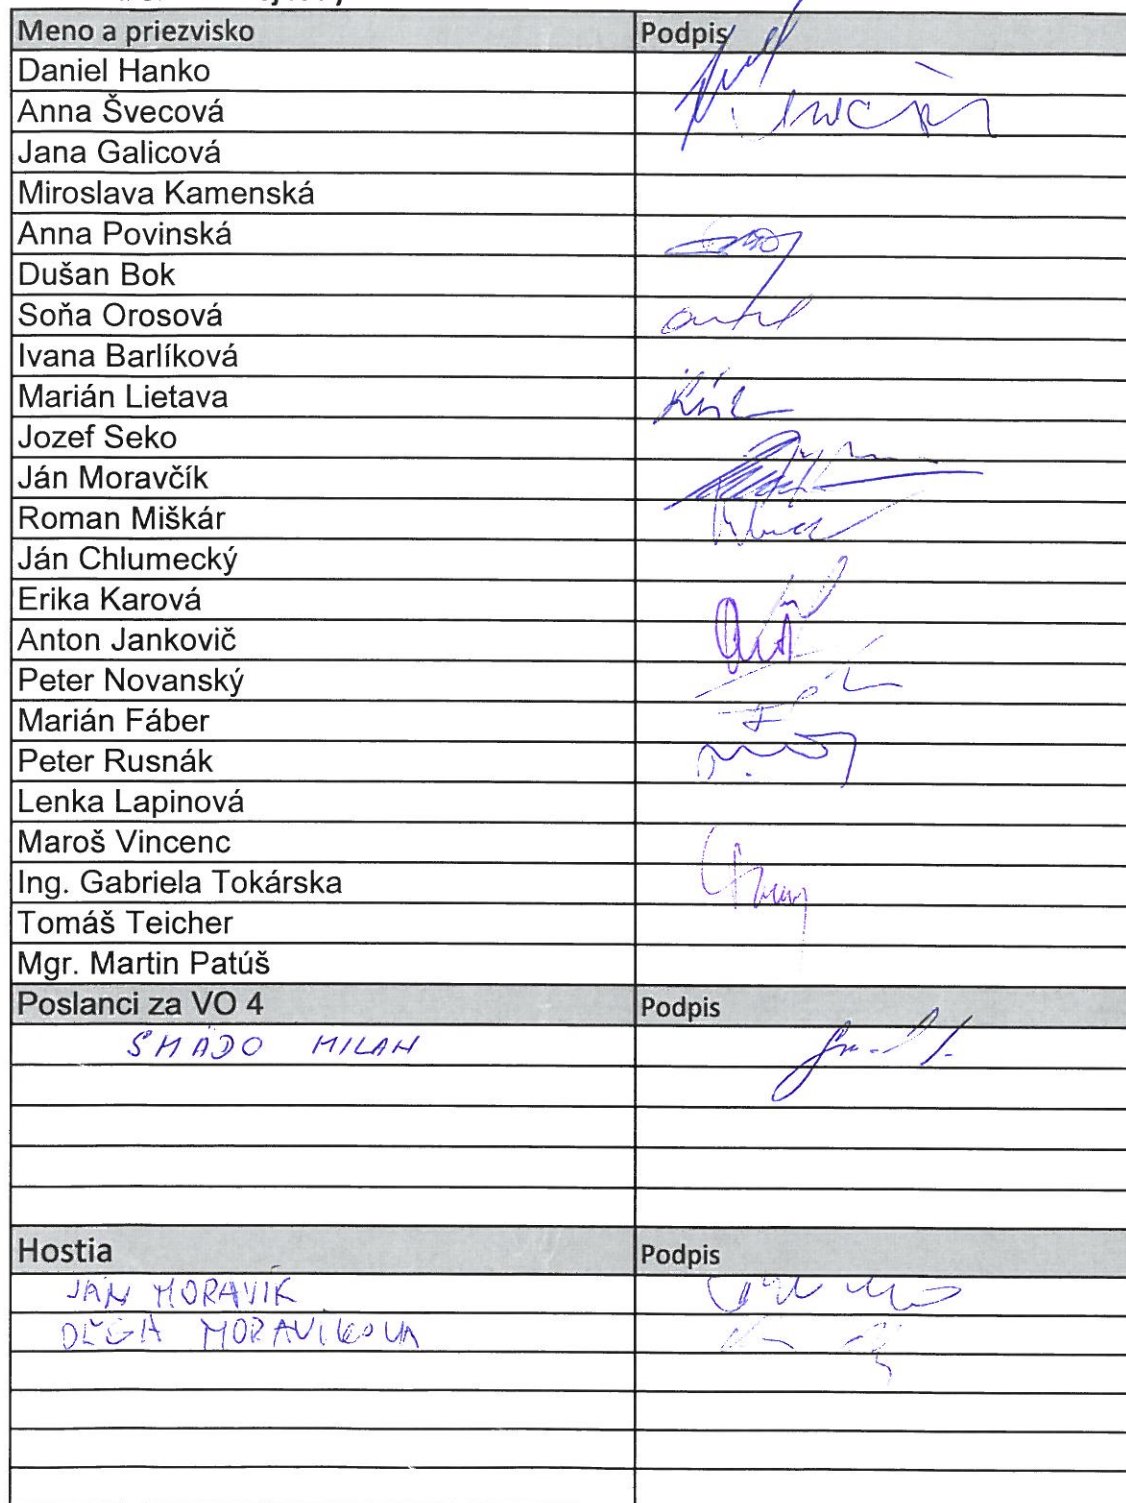 Meno a priezvisko Podpis
Daniel Hanko
Anna Švecová
Jana Galicová
Miroslava Kamenská
Anna Povinská
Dušan Bok
Soňa Orosová
Ivana Barlíková
Marián Lietava
Jozef Seko
Ján Moravčík
Roman Miškár
Ján Chlumecký
Erika Karová
Anton Jankovič
Peter Novanský
Marián Fáber
Peter Rusnák
Lenka Lapinová
Maroš Vincenc
Ing. Gabriela Tokárska
Tomáš Teicher
Mgr. Martin Patúš
Poslanci za VO 4 Podpis
SMÁDO MILAN
Hostia Podpis
JÁN MORAVÍK
MORAVÍKOVA